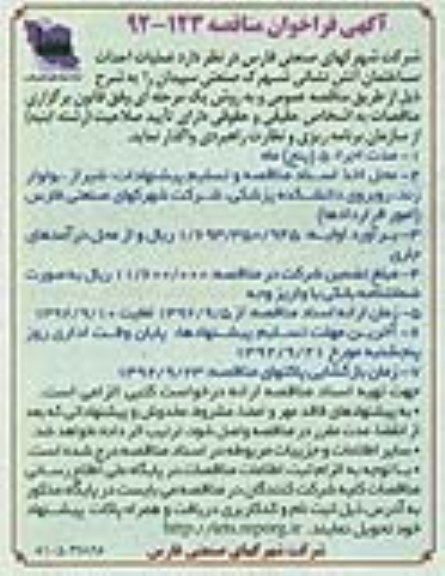 آگهی فراخوان مناقصه ۱۲۳-۹۲
شرکت شهرکهای صنعتی فارس در نظر دارد عملیات احداث
ساختمان آتش نشانی شهرک صنعتی سپیدان را به شرح
ذیل از طریق مناقصه عمومی و به روش یک مرحله ای وفق قانون برگزاری
مناقصات به اشخاص حقیقی و حقوقی دارای تأیید صلاحیت (رشته ابنیه)
از سازمان برنامه ریزی و نظارت راهبردی واگذار نماید.
۱- مدت اجرا: ۵ (پنج) ماه
۲- محل اخذ اسناد مناقصه و تسلیم پیشنهادات: شیراز - بولوار
زند، روبروی دانشکده پزشکی، شرکت شهرکهای صنعتی فارس
(امور قراردادها)
۳- برآورد اولیه: ریال و از محل درآمدهای
جاری
۴- مبلغ تضمین شرکت در مناقصه: ریال به صورت
ضمانتنامه بانکی یا واریز وجه
۵- زمان ارائه اسناد مناقصه: از ۱۳۹۲/۹/۵ لغایت ۱۳۹۲/۹/۱۰
۶- آخرین مهلت تسلیم پیشنهادها: پایان وقت اداری روز
پنجشنبه مورخ ۱۳۹۲/۹/۲۱
۷- زمان بازگشایی پاکتهای مناقصه: ۱۳۹۲/۹/۲۳
جهت تهیه اسناد مناقصه ارائه درخواست کتبی الزامی است.
• به پیشنهادهای فاقد مهر و امضا، مشروط، مخدوش و پیشنهاداتی که بعد
از انقضا مدت مقرر در مناقصه واصل شود، ترتیب اثر داده نخواهد شد.
• سایر اطلاعات و جزییات مربوطه در اسناد مناقصه درج شده است.
• با توجه به الزام ثبت اطلاعات مناقصات در پایگاه ملی اطلاع رسانی
مناقصات کلیه شرکت کنندگان در مناقصه می بایست در پایگاه مذکور
به آدرس ذیل ثبت نام و کد کاربری دریافت و همراه پاکات پیشنهاد
خود تحویل نمایند.
شرکت شهرکهای صنعتی فارس